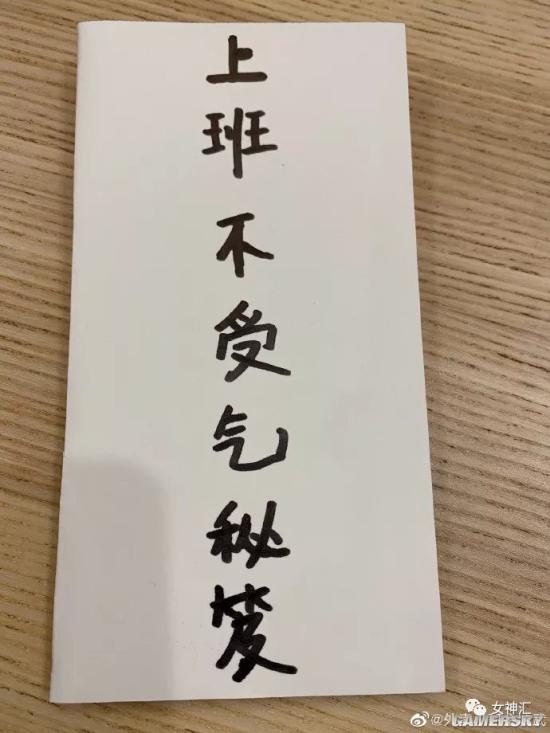 上班不受气秘笈
女神汇
GAMERSKY